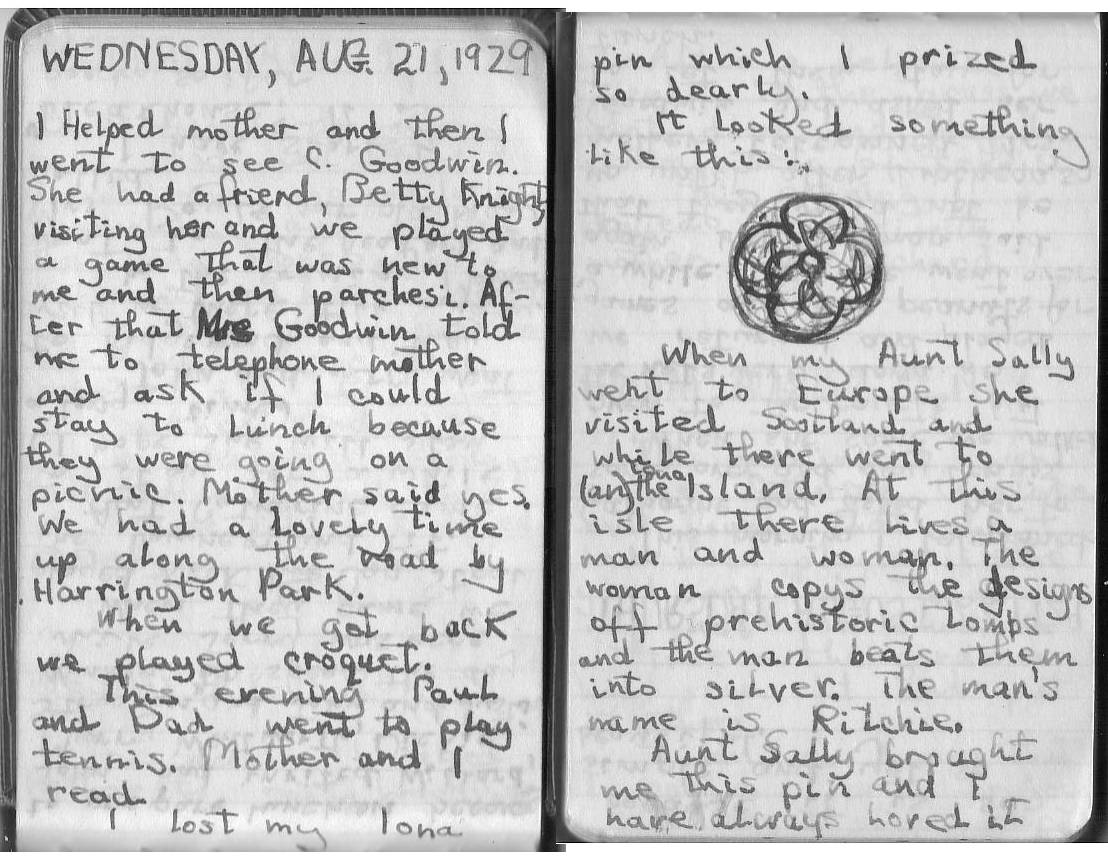 WEDNESDAY, AUG. 21, 1929
I Helped mother and then I
went to see C. Goodwin.
She had a friend, Betty Knight,
visiting her and we played
a game that was new to
me and then parchesi. Af-
ter that Mrs Goodwin told
me to telephone mother
and ask if I could
stay to lunch because
they were going on a
picnic. Mother said yes.
We had a lovely time
up along the road by
Harrington Park.
When we got back
we played croquet.
This evening Paul
and Dad went to play
tennis. Mother and I
read
I lost my Iona
pin which I prized
so dearly.
It looked something
like this:
When my Aunt Sally
went to Europe she
visited Scotland and
while there went to
(an) the Iona Island. At this
isle there lives a
man and woman. The
woman copys the designs
off prehistoric tombs
and the man beats them
into silver. The man's
name is Ritchie.
Aunt Sally brought
me this pin and I
have always loved it